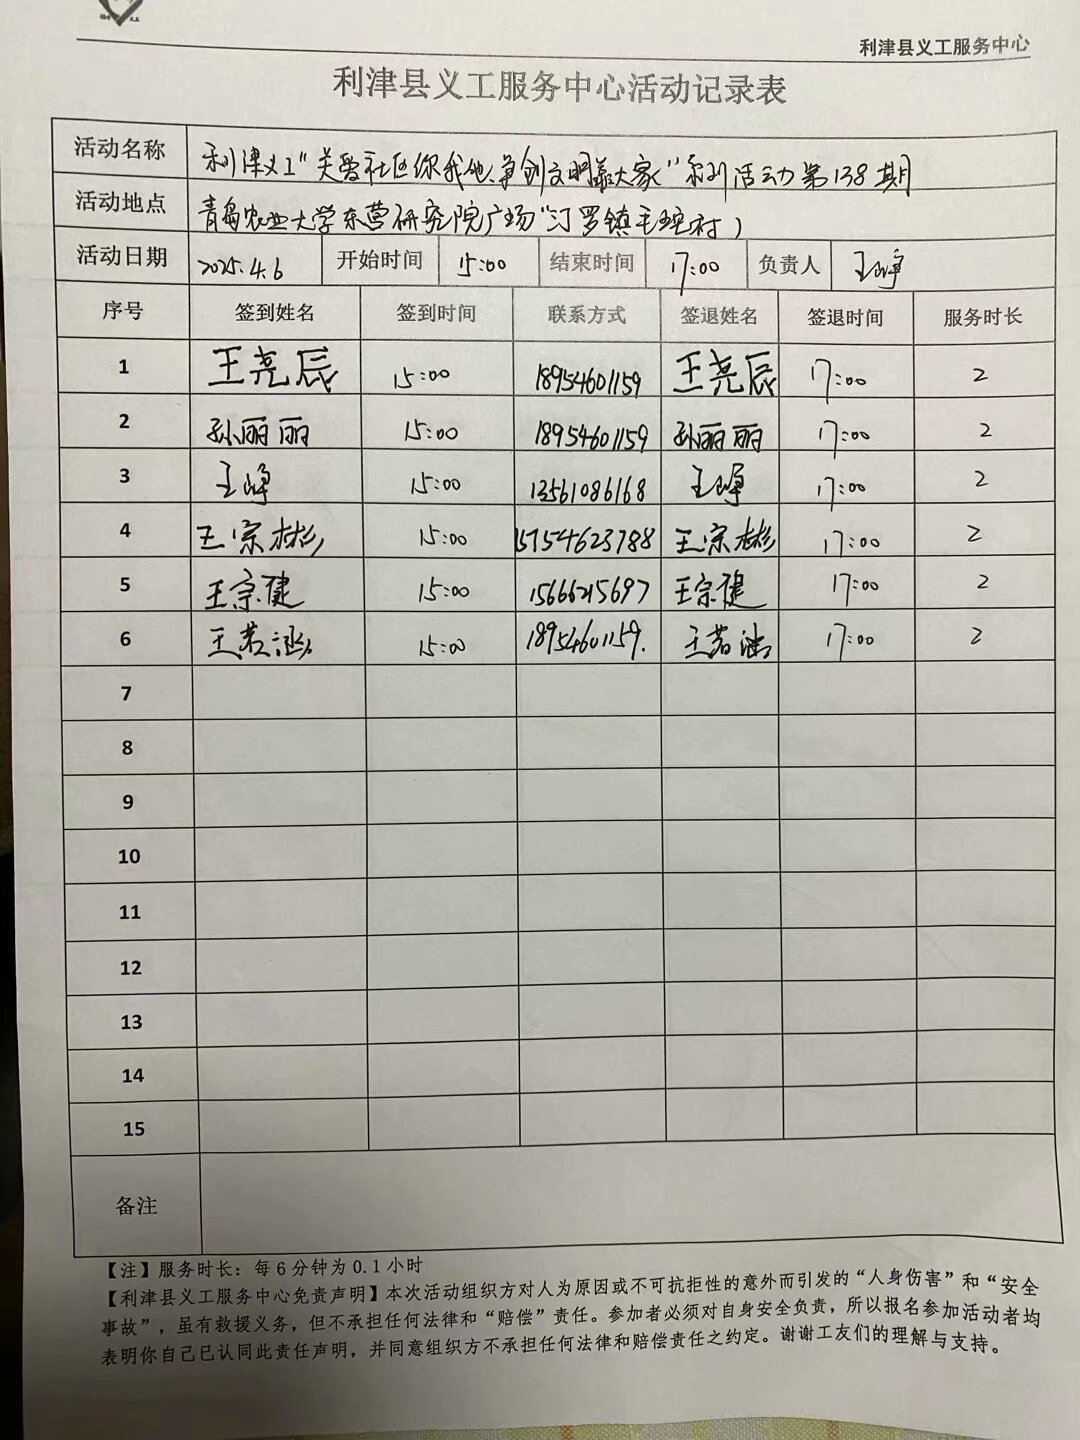 利津县义工服务中心
利津县义工服务中心活动记录表
活动名称 利津义工"关爱社区你我他、争创文明靠大家"系列活动第138期
活动地点 青岛农业大学东营研究院广场"汀罗镇毛坨村)
活动日期 2025.4.6 开始时间 15:00 结束时间 17:00 负责人 王峥
序号 签到姓名 签到时间 联系方式 签退姓名 签退时间 服务时长
1 王尧辰 15:00 18954601159 王尧辰 17:00 2
2 孙丽丽 15:00 18954601159 孙丽丽 17:00 2
3 王峥 15:00 13561086168 王峥 17:00 2
4 王宗彬 15:00 15754623788 王宗彬 17:00 2
5 王宗健 15:00 15666215697 王宗健 17:00 2
6 王若涵 15:00 18954601159. 王若涵 17:00 2
7
8
9
10
11
12
13
14
15
备注
【注】服务时长：每6分钟为0.1小时
【利津县义工服务中心免责声明】本次活动组织方对人为原因或不可抗拒性的意外而引发的“人身伤害”和“安全
事故”，虽有救援义务，但不承担任何法律和“赔偿”责任。参加者必须对自身安全负责，所以报名参加活动者均
表明你自己已认同此责任声明，并同意组织方不承担任何法律和赔偿责任之约定。谢谢工友们的理解与支持。